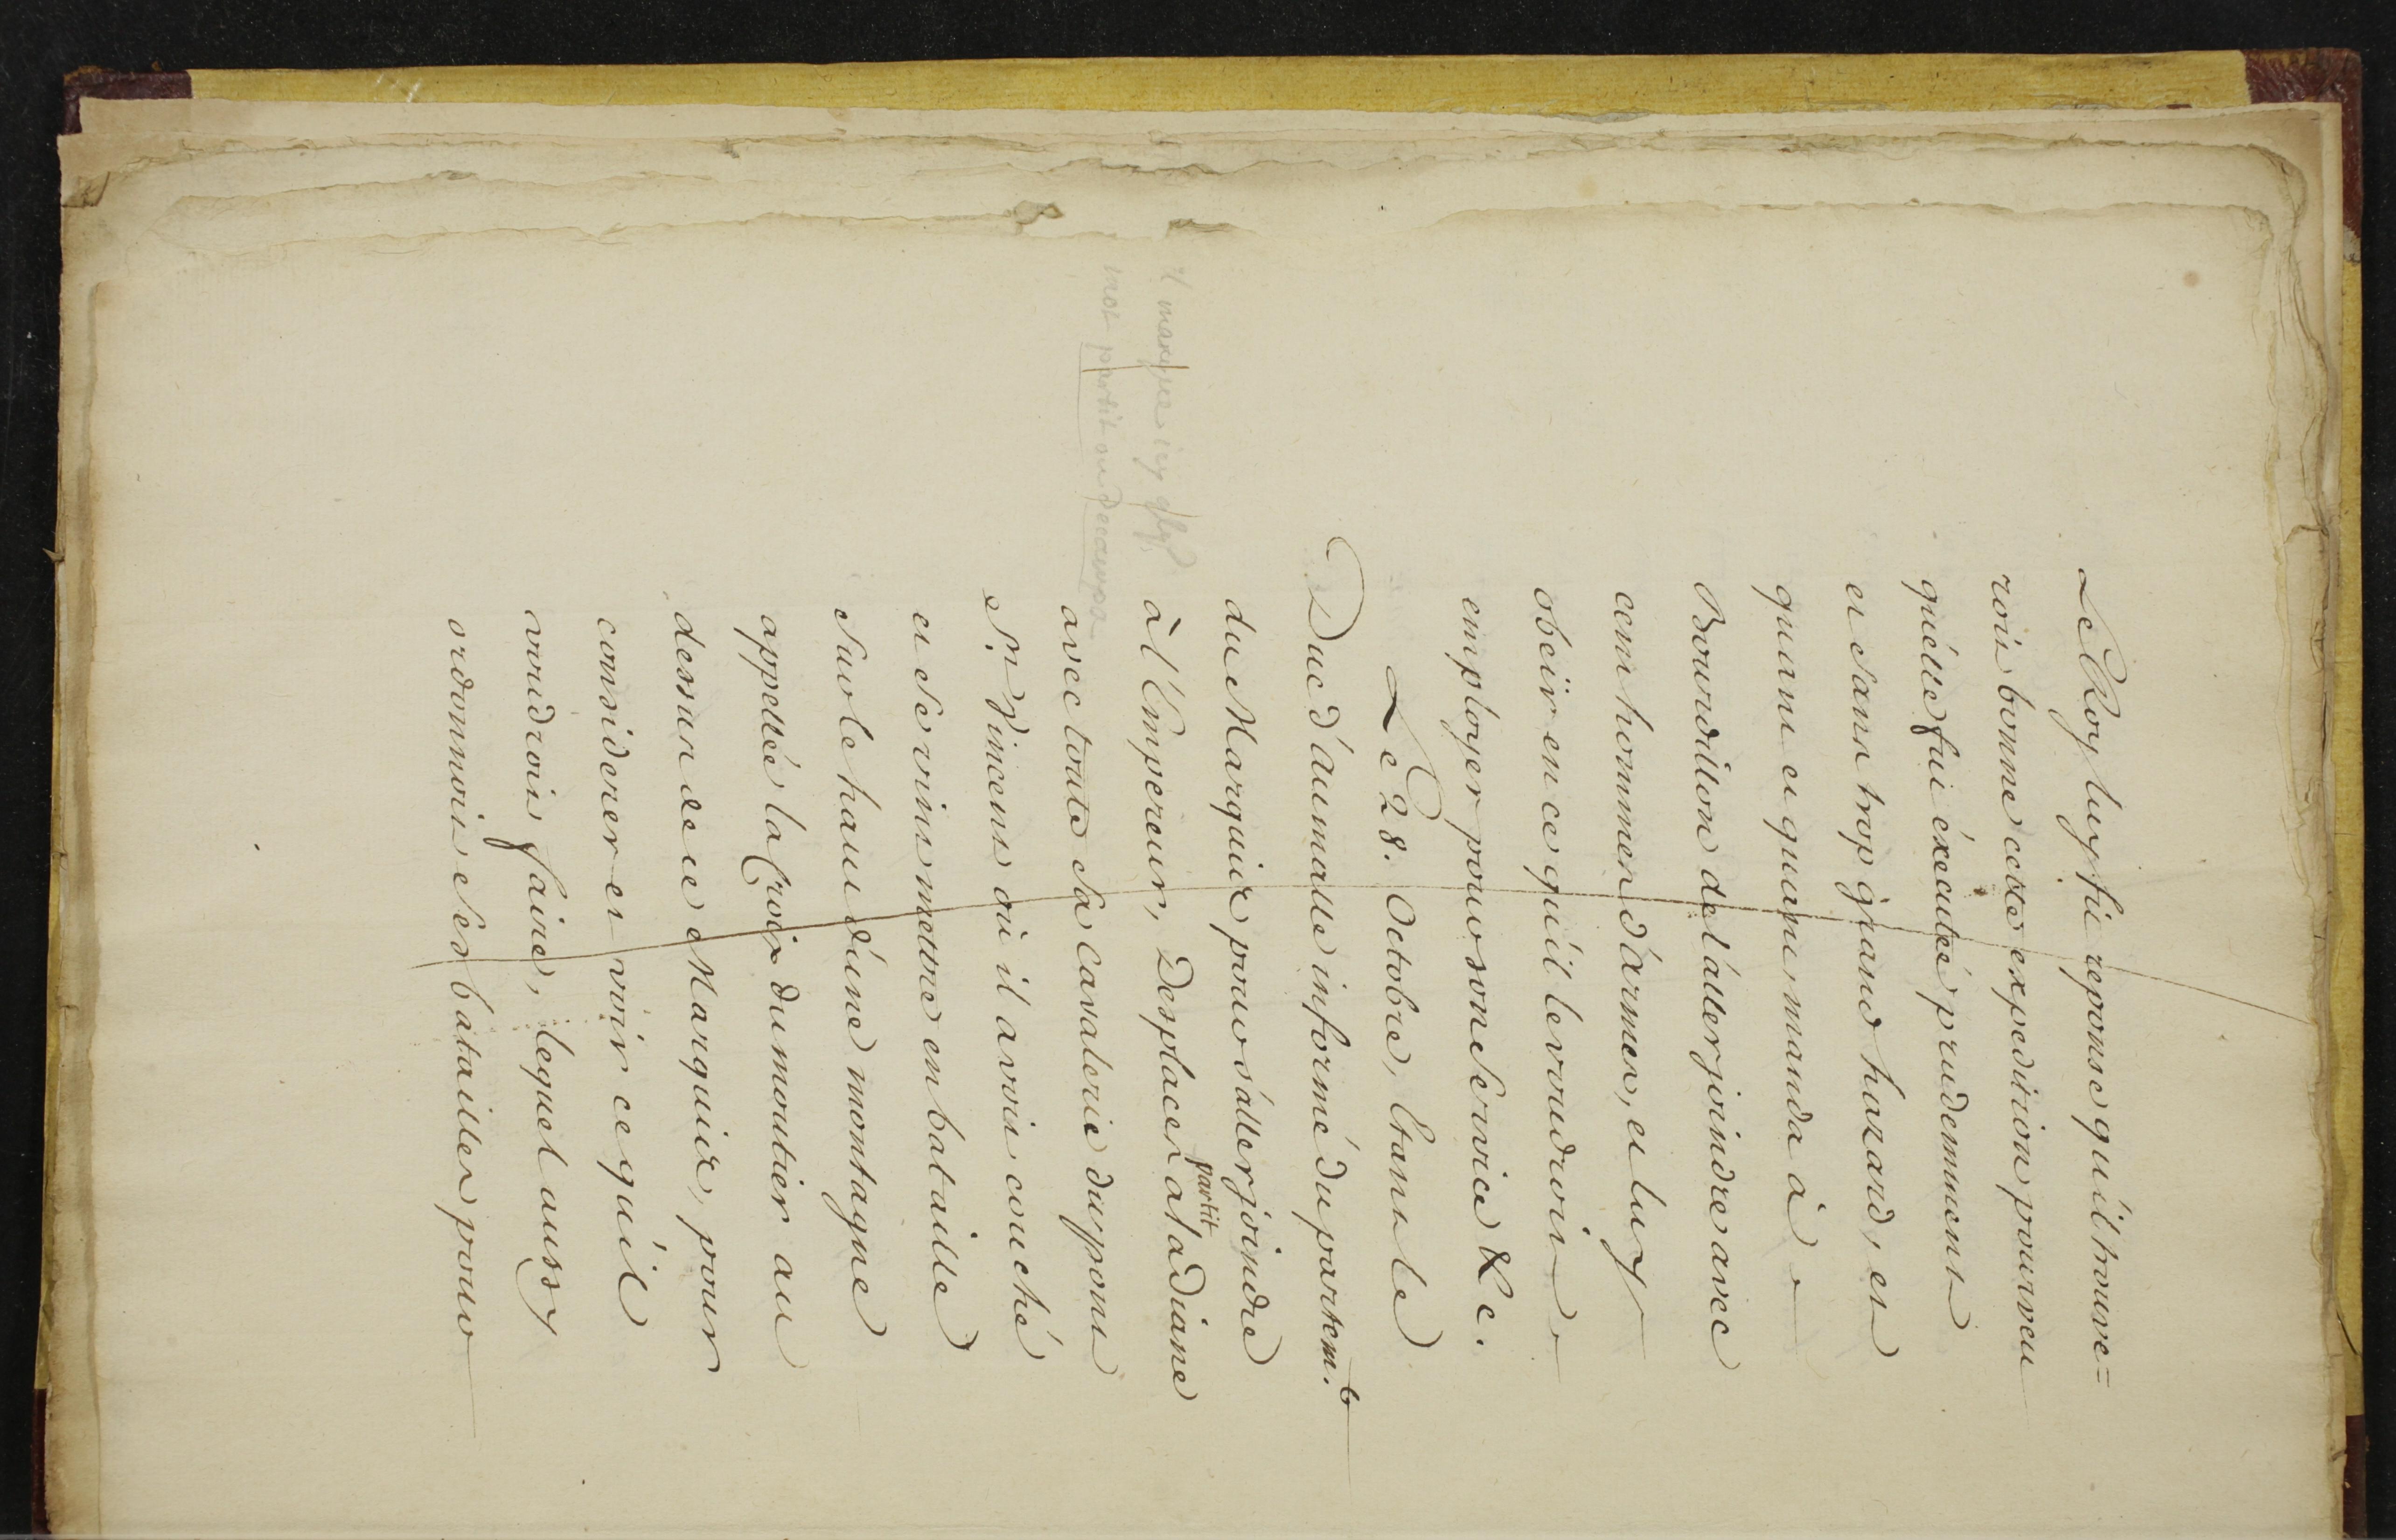 Le Roy luy fit reponse qu'il trouve=
roit bonne cette expedition pourveu
qu'elle fut éxecutée prudemment
et sans trop grand hazard, et
quant et quant manda à
Bourdillon de l'aller joindre avec
cent hommes d'armes, et luy
obeïr en ce qu'il le voudroit
employer pour son service &c.
Le 28. Octobre, Etant le
Duc d'aumalle informé du partem.t
du Marquis pour s'aller joindre
à l'Empereur, Desplacer partit a la diane
avec toute sa Cavalerie du pont
St. Vincent où il avoit couché
et se vint mettre en bataille
sur le haut d'une montagne
appellée la Croix du moutier au
dessus de ce Marquis, pour
considerer et voir ce qu'il
voudroit faire, lequel aussy
ordonnoit ses batailles pour
il manque icy
mot partit ou decampa